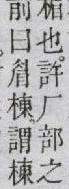 楣也。許厂部之
前曰睂棟謂棟